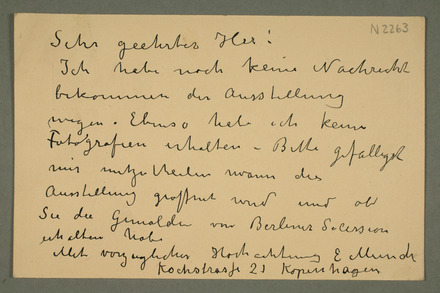 N 2263
Sehr geehrter Her!
Ich habe noch keine Nachricht
bekommen der Ausstellung
wegen. Ebenso habe ich keine
Fotografien erhalten – Bitte gefälligst
mir mitzutheilen wann die
Ausstellung geöffnet wird und ob
Sie die Gemälden von Berliner Secession
erhalten habe
Mit vorzüglicher Hochachtung E Munch
Kochstrasse 21 Kopenhagen